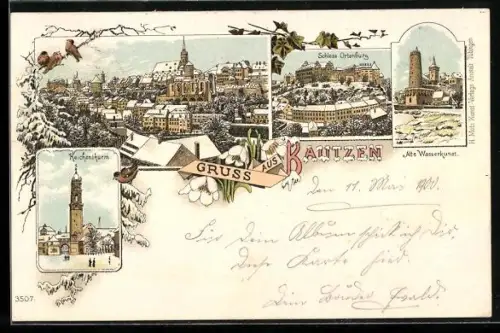 Schloss Ortenburg
Alte Wasserkunst.
Reichenturm
GRUSS aus
BAUTZEN
den 11. Mai 1900.
Für Dein Album schicke ich Dir
diese Karte hier.
Dein Bruder
3507.